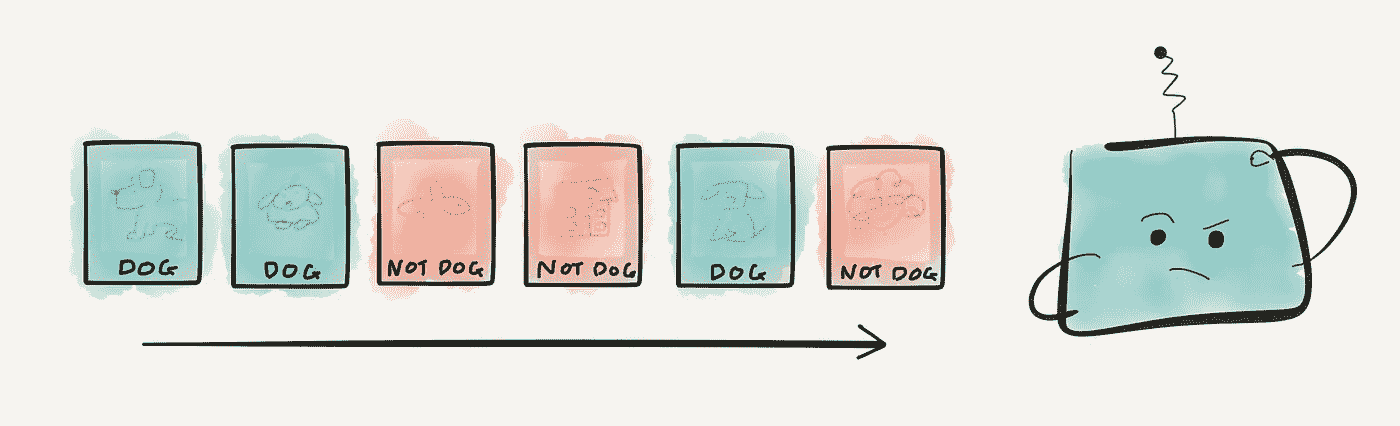 DOG
DOG
NOT DOG
NOT DOG
DOG
NOT DOG